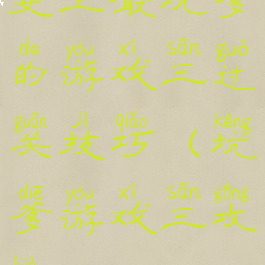 de yóu xì sān guò
的游戏三过
guān jì qiǎo kēng
关技巧（坑
diē yóu xì sān gōng
爹游戏三攻